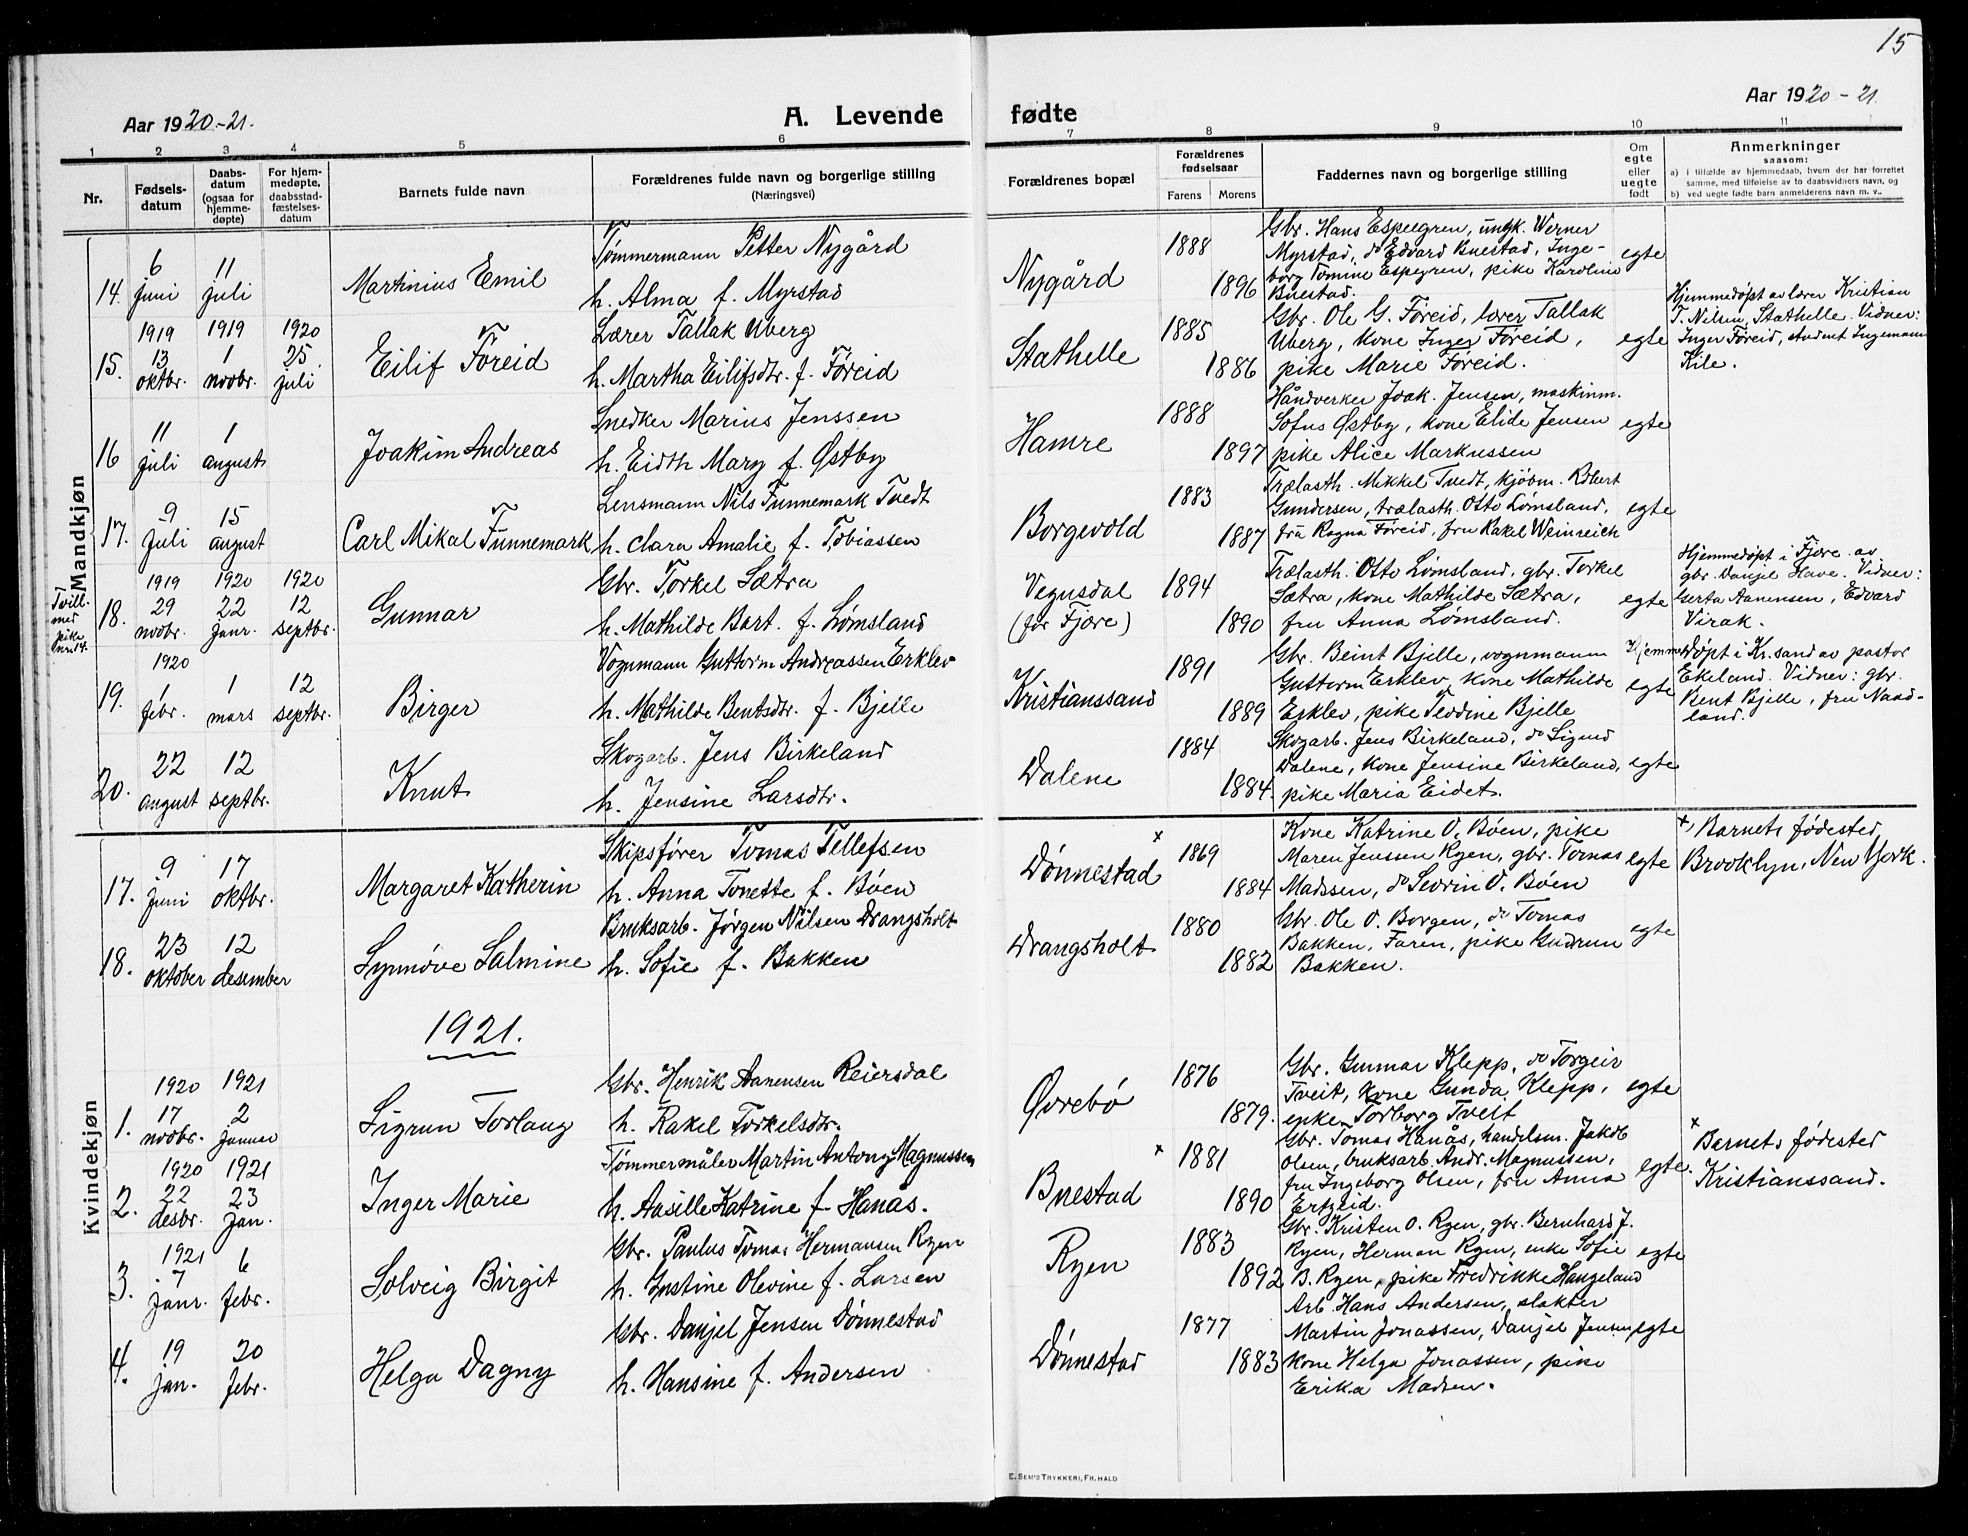 15
Aar 1920-21.
A. Levende fødte
Aar 1920-21.
1 2 3 4 5 6 7 8 9 10 11
Nr.
Fødsels-
datum
Daabs-
datum
(ogsaa for
hjemme-
døpte)
For hjem-
medøpte,
daabsstad-
fæstelses-
datum
Barnets fulde navn
Forældrenes fulde navn og borgerlige stilling
(Næringsvei)
Forældrenes bopæl
Forældrenes
fødselsaar
Farens Morens
Faddernes navn og borgerlige stilling
Om
egte
eller
uegte
født
Anmerkninger
saasom:
a) i tilfælde av hjemmedaab, hvem der har forrettet
samme, med tilføielse av to daabsvidners navn, og
b) ved uegte fødte barn anmelderens navn m. v..
Mandkjøn
14. 6 juni 11 juli
Martinius Emil
Tømmermann Petter Nygård
h. Alma f. Myrstad
Nygård
1888
1896
Gbr. Hans Espegren, ungk. Werner
Myrstad, do Edvard Bnestad, Inge-
borg Tomine Espegren, pike Karoline
Bnestad.
egte
15. 1919 13 oktbr. 1919 1 novbr. 1920 25 juli
Eilif Føreid
Lærer Tallak Uberg
h. Martha Eilifsdtr. f. Føreid
Stathelle
1885
1886
Gbr. Ole G. Føreid, lærer Tallak
Uberg, kone Inger Føreid,
pike Marie Føreid.
egte
Hjemmedøpt av lærer Kristian
T. Nilsen, Stathelle. Vidner:
Inger Føreid, student Ingemann
Kile.
16 11 juli 1 august
Joakim Andreas
Snedker Marius Jenssen
h. Eidth Mary f. Østby
Hamre
1888
1897
Håndverker Joak. Jensen, maskinm.
Sofus Østby, kone Elide Jensen
pike Alice Markussen
egte
17. 9 juli 15 august
Carl Mikal Tunnemark
Lensmann Nils Tunnemark Tvedt
h. Clara Amalie f. Tobiassen
Borgevold
1883
1887
Trælasth. Mikkel Tvedt, kjøbm. Robert
Gundersen, trælasth. Otto Lømsland,
fru Ragna Føreid, fru Rakel Weinreich
egte
Tvill.
med
pike
nr. 14.
18. 1919 29 novbr. 1920 22 janr. 1920 12 septbr.
Gunnar
Gbr. Torkel Sætra
h. Mathilde Bart. f. Lømsland
Vegusdal
(før Fjære)
1894
1890
Trælasth. Otto Lømsland, gbr. Torkel
Sætra, kone Mathilde Sætra,
fru Anna Lømsland.
egte
Hjemmedøpt i Fjære av
gbr. Danjel Have. Vidner:
Gerta Aanensen, Edvard
Virak.
19. 1920 febr. 1 mars 12 septbr.
Birger
Vognmann Guttorm Andreassen Erklev
h. Mathilde Bentsdtr. f. Bjelle
Kristianssand
1891
1889
Gbr. Beint Bjelle, vognmann
Guttorm Erklev, kone Mathilde
Erklev, pike Teodine Bjelle
egte
Hjemmedøpt i Kr.sand av pastor
Ekeland. Vidner: gbr.
Bent Bjelle, fru Naad-
land.
20. 22 august 12 septbr.
Knut
Skogarb. Jens Birkeland
h. Jensine Larsdtr.
Dalene
1884
1884.
Skogarb. Jens Birkeland, do Sigurd
Dalene, kone Jensine Birkeland,
pike Maria Eidet.
egte
Kvindekjøn
17. 9 juni 17 oktbr.
Margaret Katherin
Skipsfører Tomas Tellefsen
h. Anna Tonette f. Bøen
Dønnestad x
1869
1884
Kone Katrine O. Bøen, pike
Maren Jenssen Ryen, gbr. Tomas
Madssen, do Sevrin O. Bøen
egte
+, Barnets fødested
Brooklyn, New York.
18. 23 oktober 12 desember
Synnøve Salmine
Bruksarb. Jørgen Nilsen Drangsholt
h. Sofie f. Bakken
Drangsholt
1880
1882
Gbr. Ole O. Borgen, do Tomas
Bakken, Faren, pike Gudrun
Bakken.
egte
1921.
1. 1920 17 novbr. 1921 2 januar
Sigrun Torlaug
Gbr. Henrik Aanensen Reiersdal
h. Rakel Torkelsdtr.
Øvrebø
1876
1879.
Gbr. Gunnar Klepp, do Torgeir
Tveit, kone Gunda Klepp,
enke Torborg Tveit
egte
2. 1920 22 desbr. 1921 23 jan.
Inger Marie
Tømmermåler Martin Antony Magnussen
h. Aasille Katrine f. Hanås.
Bnestad x
1881
1890
Gbr. Tomas Hanås, handelsm. Jakob
Olsen, bruksarb. Andr. Magnussen,
fru Ingeborg Olsen, fru Anna
Erkleid.
egte.
x
Barnets fødested
Kristianssand.
3. 1921 7 janr. 6 febr.
Solveig Birgit
Gbr. Paulus Tomas Hermansen Ryen
h. Gustine Olevine f. Larsen
Ryen
1883
1892
Gbr. Kristen O. Ryen, gbr. Bernhard J.
Ryen, Herman Ryen, enke Sofie
B. Ryen, pike Fredrikke Haugeland
egte
4. 19 jan. 20 febr.
Helga Dagny
Gbr. Danjel Jensen Dønnestad
h. Hansine f. Andersen
Dønnestad
1877
1883
Arb. Hans Andersen, slakter
Martin Jonassen, Danjel Jensen
kone Helga Jonassen, pike
Erika Madsen.
egte
E. Sem's Trykkeri, Fr.hald